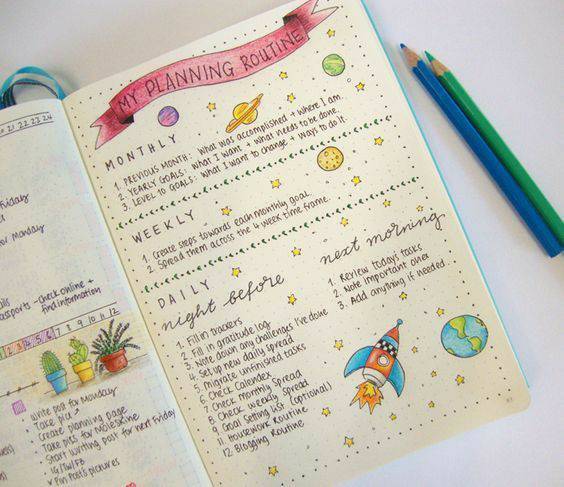 MY PLANNING ROUTINE
MONTHLY
1. PREVIOUS MONTH: What was accomplished + where I am.
2. YEARLY GOALS: What I want + what needs to be done.
3. LEVEL 10 GOALS: What I want to change + ways to do it.
WEEKLY
1. Create steps towards each monthly goal.
2. Spread them across the 4 week time frame.
DAILY
night before
1. Fill in trackers
2. Fill in gratitude log
3. Note down any challenges I've done
4. Set up new daily spread
5. Migrate unfinished tasks
6. Check Calendex
7. Check monthly spread
8. Check weekly spread
9. Goal Setting list (optional)
11. Housework Routine
12. Blogging Routine
next morning
1. Review todays tasks
2. Note important ones
3. Add anything if needed.
21 22 23 24
Friday
or Monday
assports - check online +
find information
2 3 4 5 6 7 8 9 10 11 12
Write post for Monday
Take pic
Create planning page
Take pics for Moleskine
Start writing post for next Friday
IG/TW/FB
Pin Post's pictures